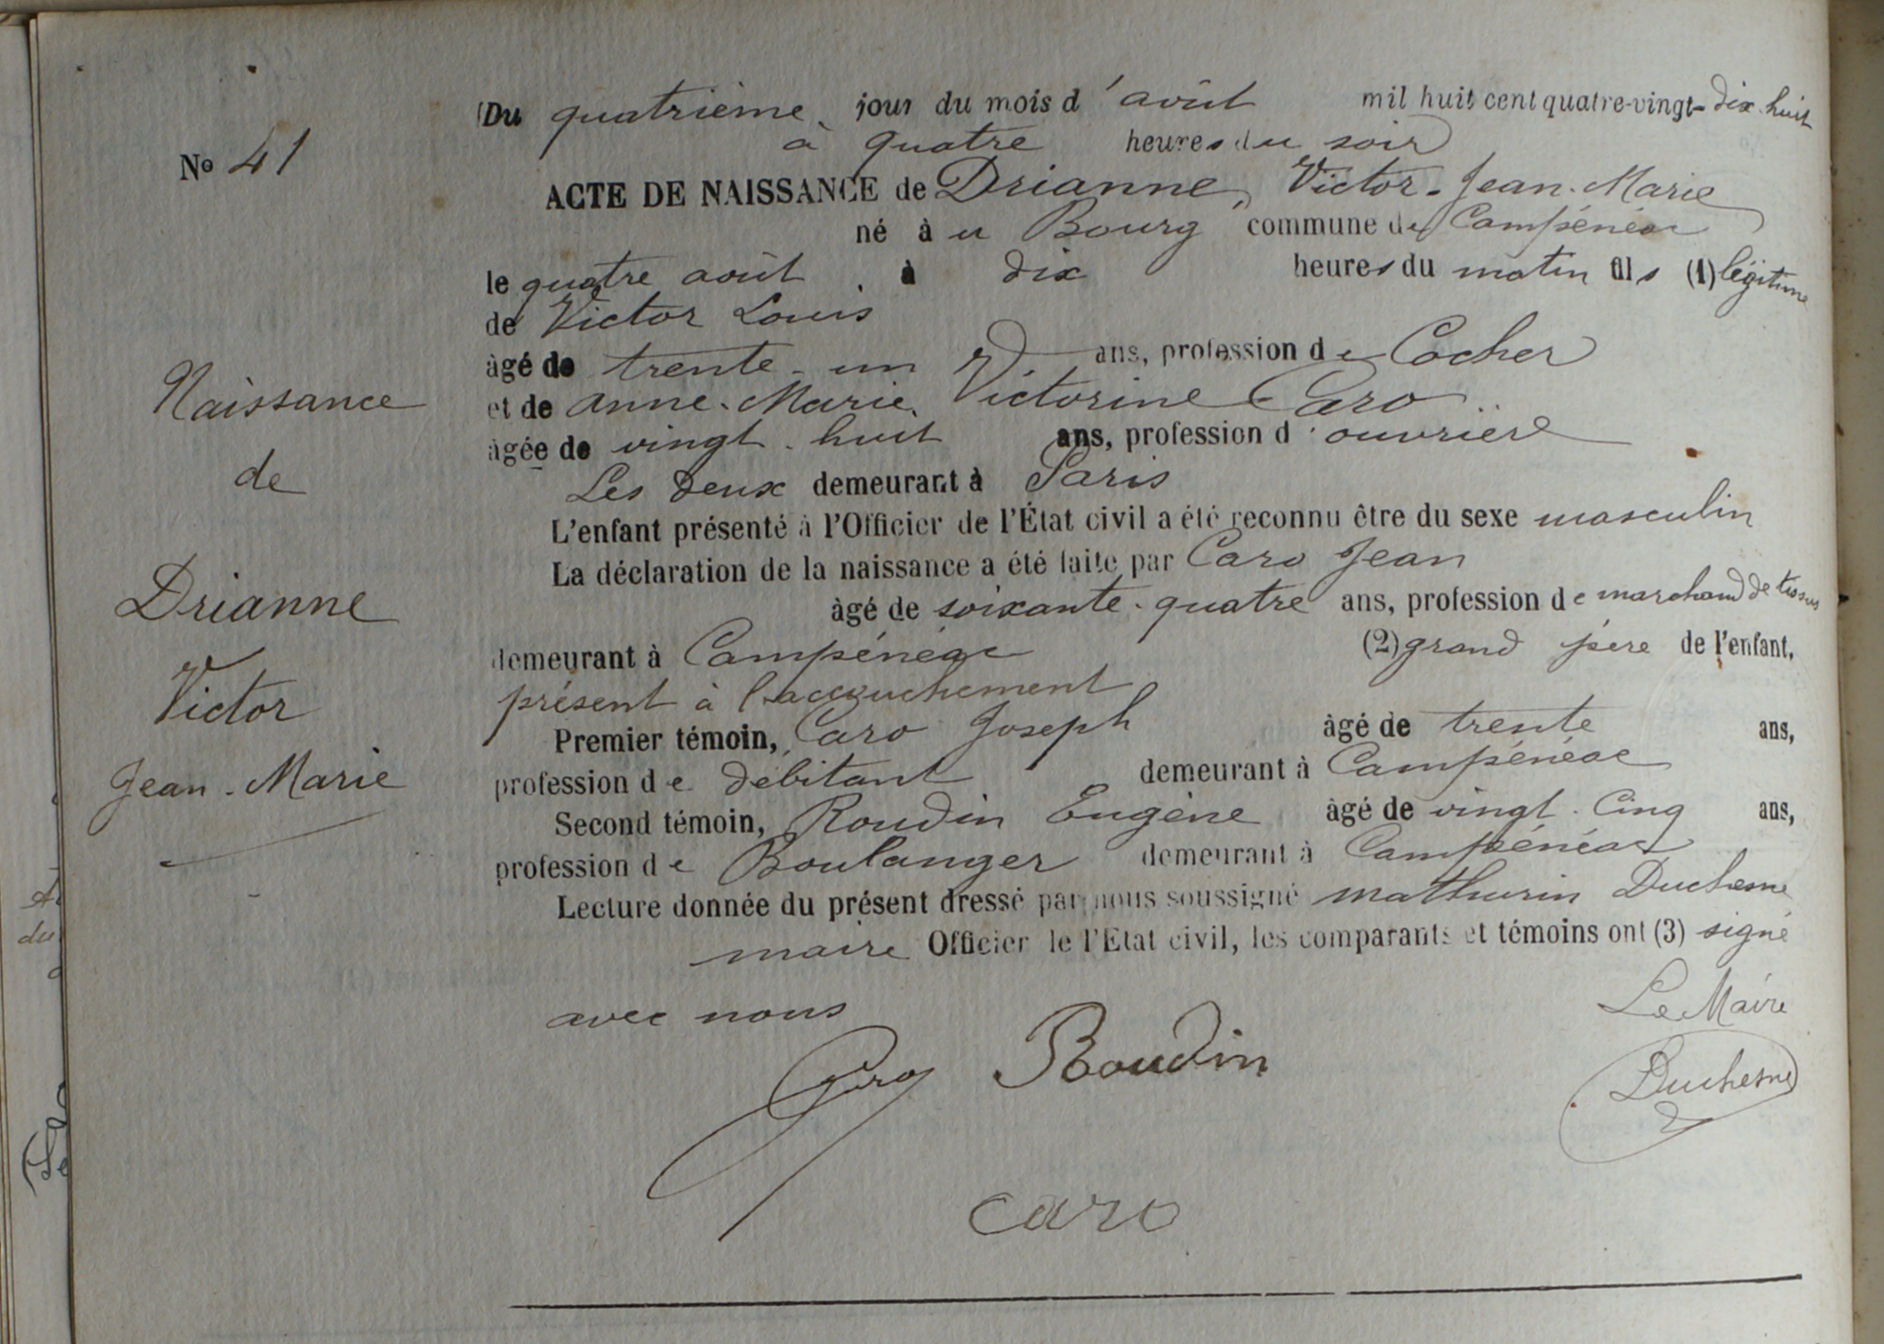 No 41
Naissance
de
Drianne
Victor
Jean-Marie
Du quatrième jour du mois d'août mil huit cent quatre-vingt-dix-huit
à quatre heures du soir
ACTE DE NAISSANCE de Drianne, Victor-Jean-Marie
né à u Bourg commune de Campénéac
le quatre août à dix heures du matin fils (1) légitime
de Victor Louis
âgé de trente-un ans, profession de Cocher
et de Anne-Marie Victorine Caro
âgée de vingt-huit ans, profession d'ouvrière
Les deux demeurant à Paris
L'enfant présenté à l'Officier de l'État civil a été reconnu être du sexe masculin
La déclaration de la naissance a été faite par Caro Jean
âgé de soixante-quatre ans, profession de marchand de tissus
demeurant à Campénéac (2) grand père de l'enfant,
présent à l'accouchement
Premier témoin, Caro Joseph âgé de trente ans,
profession de débitant demeurant à Campénéac
Second témoin, Roudin Eugène âgé de vingt-cinq ans,
profession de Boulanger demeurant à Campénéac
Lecture donnée du présent dressé par nous soussigné Mathurin Duchesne
maire Officier de l'État civil, les comparants et témoins ont (3) signé
avec nous
Le Maire
Caro Roudin Duchesne
Caro